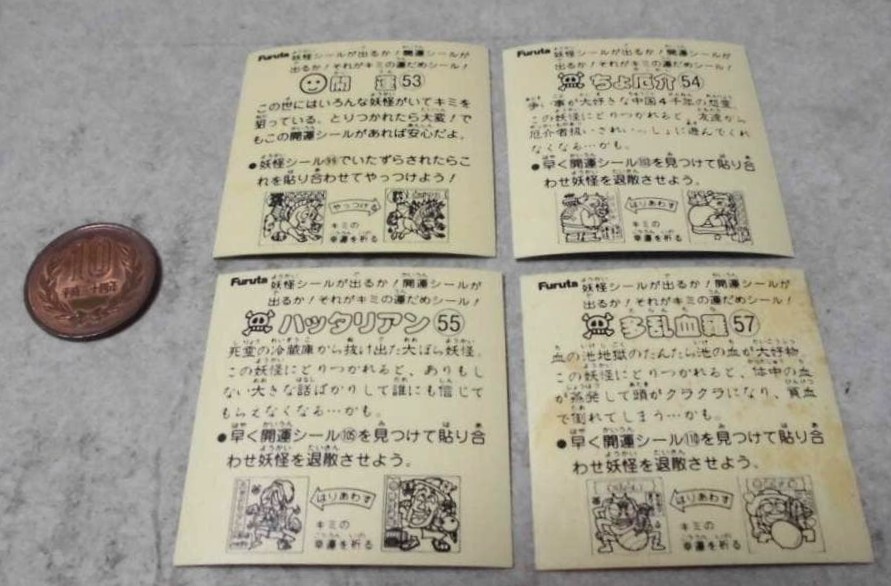 10
Furuta 妖怪シールが出るか！開運シールが
出るか！それがキミの運だめシール！
開運 53
この世にはいろんな妖怪がいてキミを
狙っている、とりつかれたら大変！で
もこの開運シールがあれば安心だよ。
●妖怪シール でいたずらされたらこ
れを貼り合わせてやっつけよう！
やっつけ
キミの
幸運を祈る
Furuta 妖怪シールが出るか！開運シールが
出るか！それがキミの運だめシール！
ちょ厄介 54
争い事が大好きな中国4千年の
この妖怪にとりつかれると、友達から
厄介者扱いされいっしょに遊んでくれ
なくなる…かも。
●早く開運シール を見つけて貼り合
わせ妖怪を退散させよう。
はりあわす
キミの
幸運を祈る
Furuta 妖怪シールが出るか！開運シールが
出るか！それがキミの運だめシール！
ハッタリアン 55
死霊の冷蔵庫から抜け出た大ぼら妖怪。
この妖怪にとりつかれると、ありもし
ない大きな話ばかりして誰にも信じて
もらえなくなる…かも。
●早く開運シール を見つけて貼り合
わせ妖怪を退散させよう。
はりあわす
キミの
幸運を祈る
Furuta 妖怪シールが出るか！開運シールが
出るか！それがキミの運だめシール！
多乱血 57
血の池地獄のたんたら池の血が大好物
この妖怪にとりつかれると、体中の血
が蒸発して頭がクラクラになり、貧血
で倒れてしまう…かも。
●早く開運シール を見つけて貼り合
わせ妖怪を退散させよう。
はりあわす
キミの
幸運を祈る